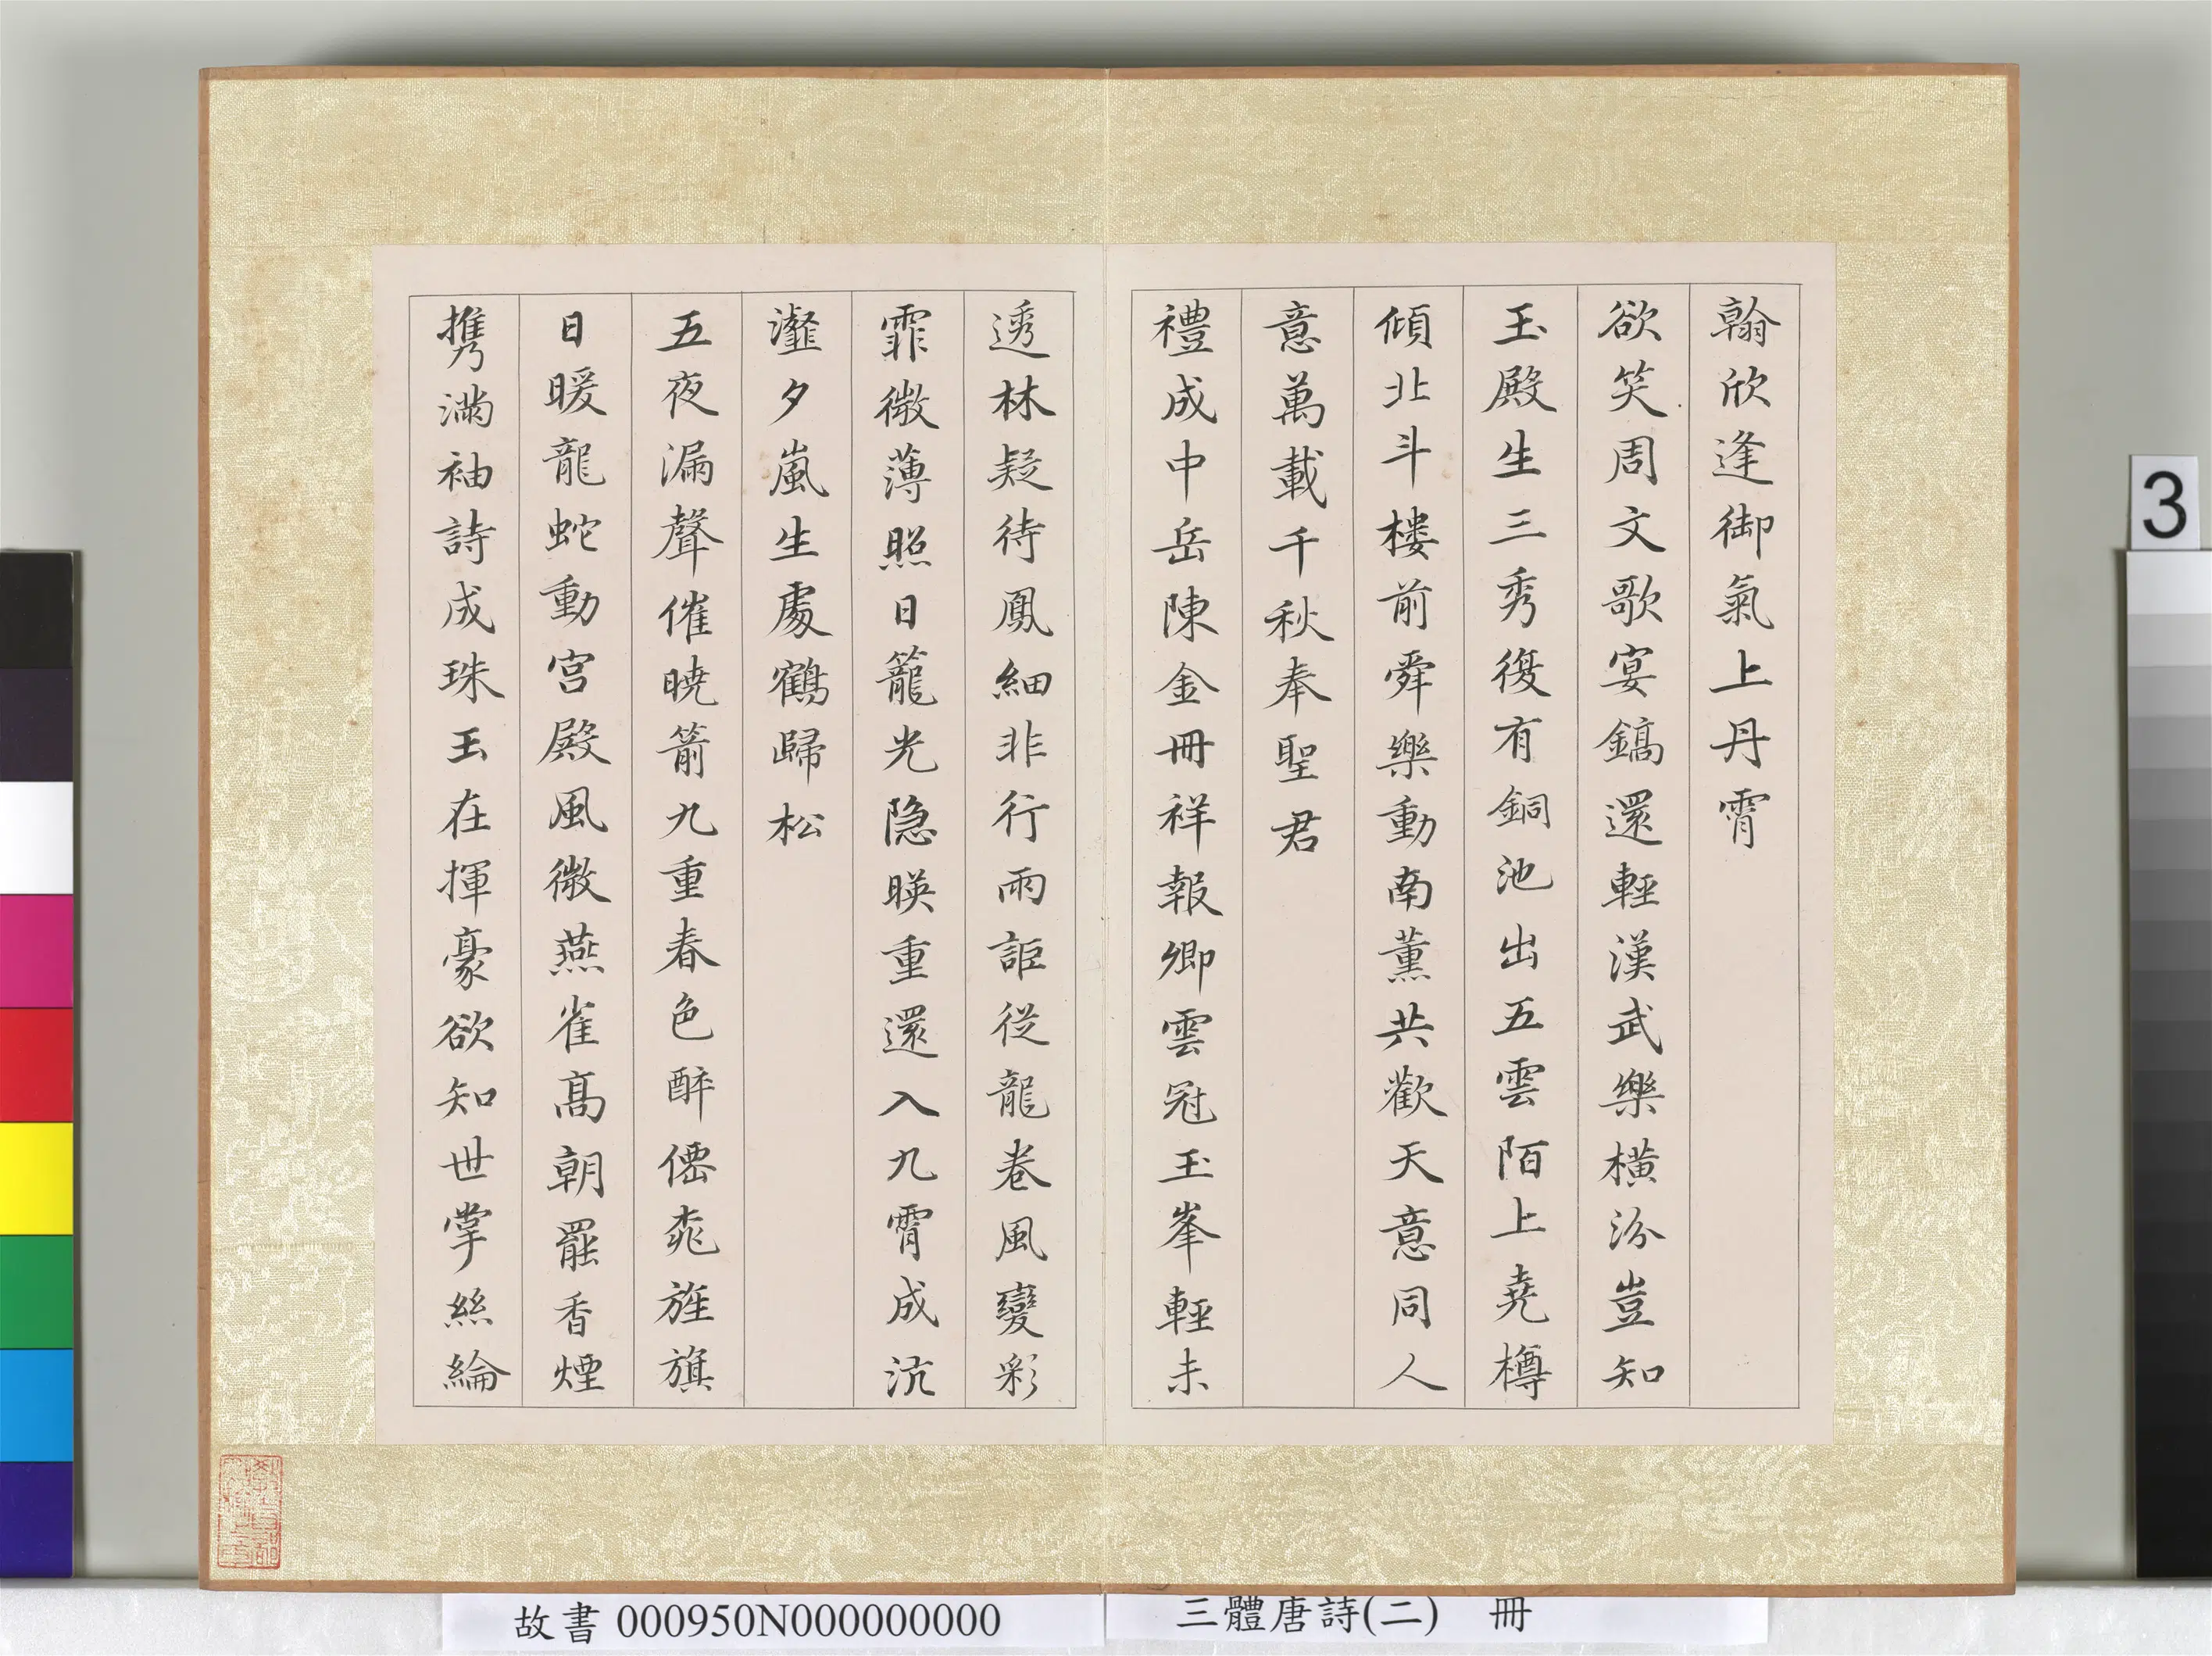 翰欣逢御氣上丹霄
欲笑周文歌宴鎬還輕漢武樂橫汾豈知
玉殿生三秀復有銅池出五雲陌上堯樽
傾北斗樓前舜樂動南薰共歡天意同人
意萬載千秋奉聖君
禮成中岳陳金冊祥報卿雲冠玉峯輕未
透林疑待鳳細非行雨詎從龍卷風變彩
霏微薄照日籠光隐暎重還入九霄成沆
瀣夕嵐生處鶴歸松
五夜漏聲催曉箭九重春色醉僊桃旌旗
日暖龍蛇動宮殿風微燕雀高朝罷香煙
携滿袖詩成珠玉在揮豪欲知世掌絲綸
3
故書 000950N000000000
三體唐詩(二) 冊